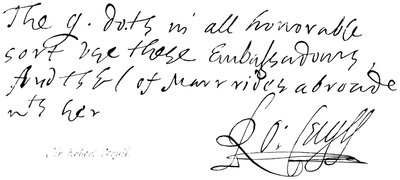 The q. doth in all honorable
sort use these Embassadours,
And the E of Marr rides abroade
wth her
Ro: Cecyll
Sir Robert Cecyll